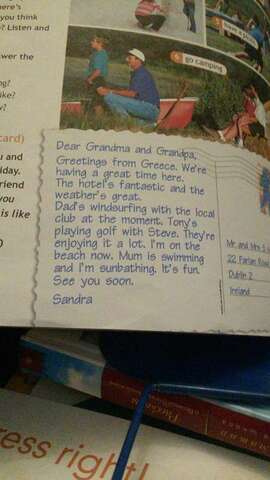 here's
you think
? Listen and
wer the
ng?
ike?
y?
card)
u and
iday.
riend
you
is like
go camping
Dear Grandma and Grandpa,
Greetings from Greece. We're
having a great time here.
The hotel's fantastic and the
weather's great.
Dad's windsurfing with the local
club at the moment. Tony's
playing golf with Steve. They're
enjoying it a lot. I'm on the
beach now. Mum is swimming
and I'm sunbathing. It's fun.
See you soon.
Sandra
Mr and Mrs S
22 Parlan Road
Dublin 2
Ireland
ress right!